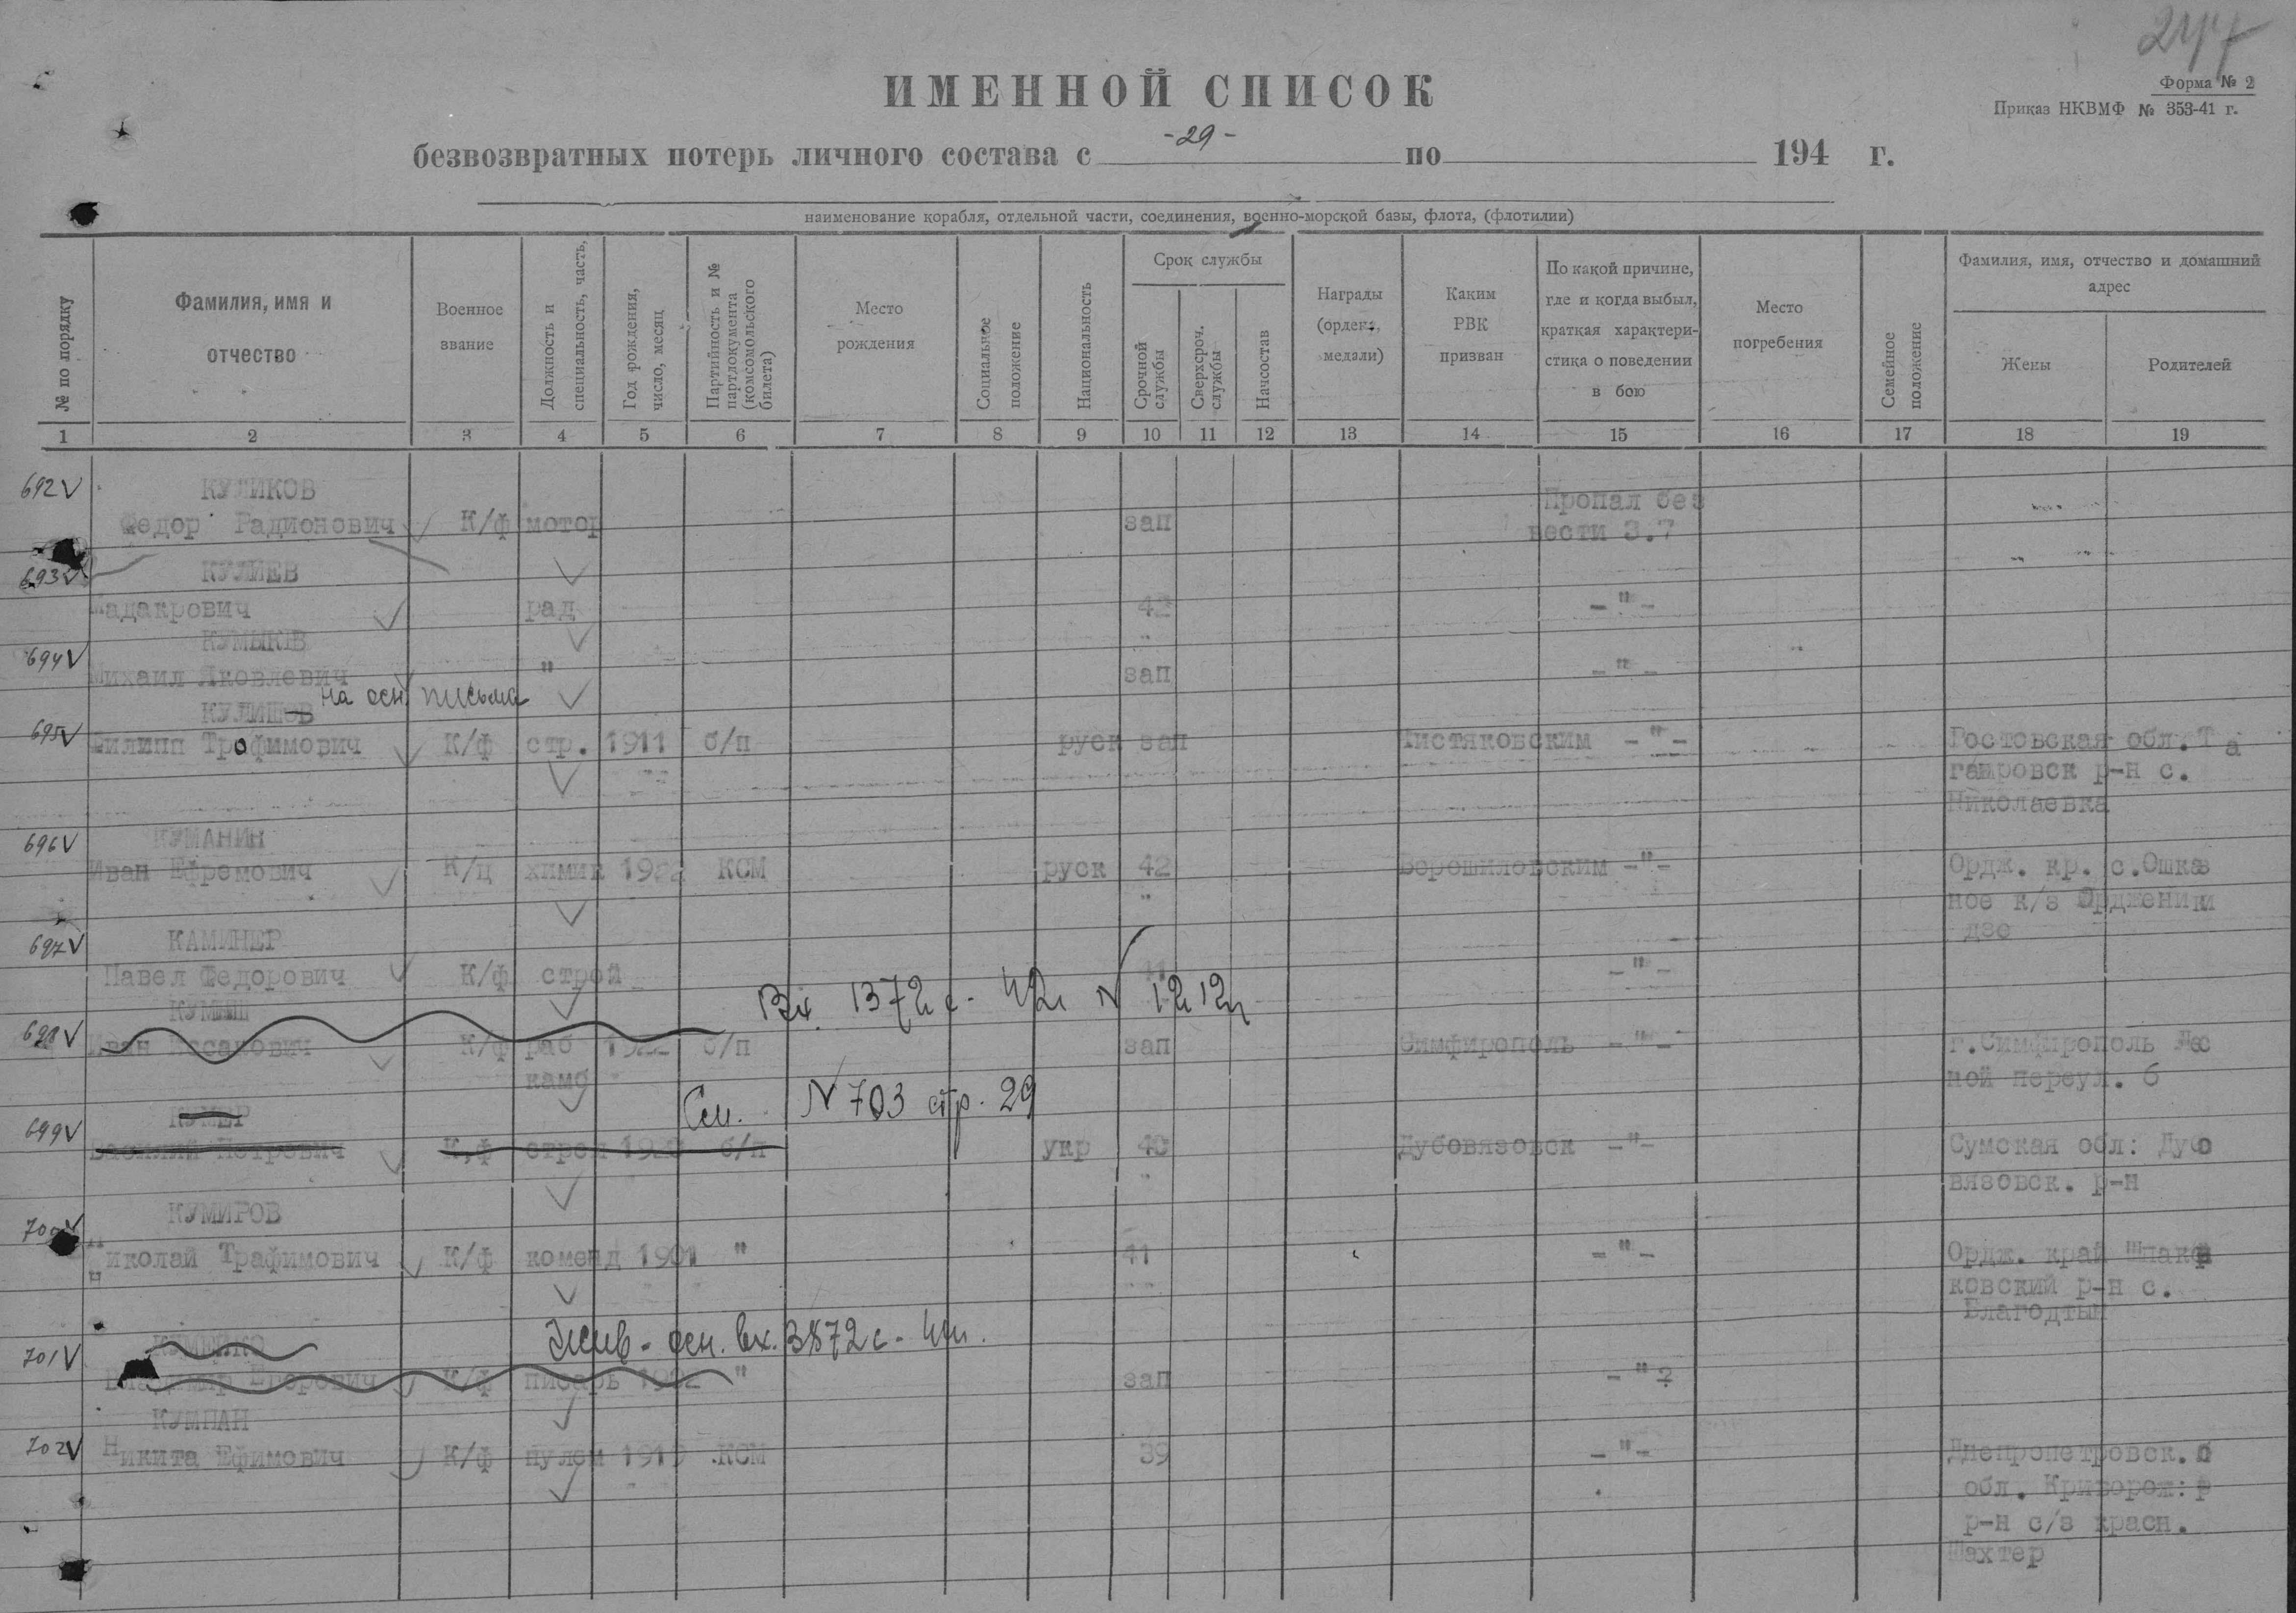 247
ИМЕННОЙ СПИСОК
Форма № 2
Приказ НКВМФ № 353-41 г.
- 29 -
безвозвратных потерь личного состава с по 194 г.
наименование корабля, отдельной части, соединения, военно-морской базы, флота, (флотилии)
№ по порядку
Фамилия, имя и отчество
Военное звание
Должность и специальность, часть,
Год рождения, число, месяц
Партийность и № партдокумента (комсомольского билета)
Место рождения
Социальное положение
Национальность
Срок службы
Срочной службы
Сверхсроч. службы
Начсостав
Награды (ордена, медали)
Каким РВК призван
По какой причине, где и когда выбыл, краткая характеристика о поведении в бою
Место погребения
Семейное положение
Фамилия, имя, отчество и домашний адрес
Жены
Родителей
1 2 3 4 5 6 7 8 9 10 11 12 13 14 15 16 17 18 19
692 КУЛИКОВ Пропал без
Федор Радионович К/ф мотор зап вести 3.7
693 КУЛИЕВ
рад 42 -"-
694
Михаил Яковлевич " зап -"-
на осн. письма
695 Филипп Трофимович К/ф стр. 1911 б/п руск зап Чистяковским -"- Ростовская обл. Та
р-н с.
Николаевка
696 КУМАНИН
Иван Ефремович К/ц химик 1922 КСМ руск 42 Ворошиловским -"- Ордж. кр. с.
ное к/з
дзе
697 КАМИНЕР
Павел Федорович К/ф строй 41 -"-
Вх. 1372 с- 42 N 1212
698 Иван К/ф раб 1922 б/п зап Симфирополь -"- г.Симфирополь
камб ной переул. 6
См. N 703 стр. 29
699 КУМЕР
Василий Петрович К/ф стрел б/п укр 40 Дубовязовск -"- Сумская обл: Дубо
вязовск. р-н
700 КУМИРОВ
Николай Трафимович К/ф коменд 1901 " 41 -"- Ордж. край
ковский р-н с.
701 осн. вх.
Владимир К/ф писарь " зап -"-
702 КУМПАН
Никита Ефимович К/ф пулем КСМ 39 -"- Днепропетровск.
обл. Криворож: р
р-н с/з красн.
Шахтер